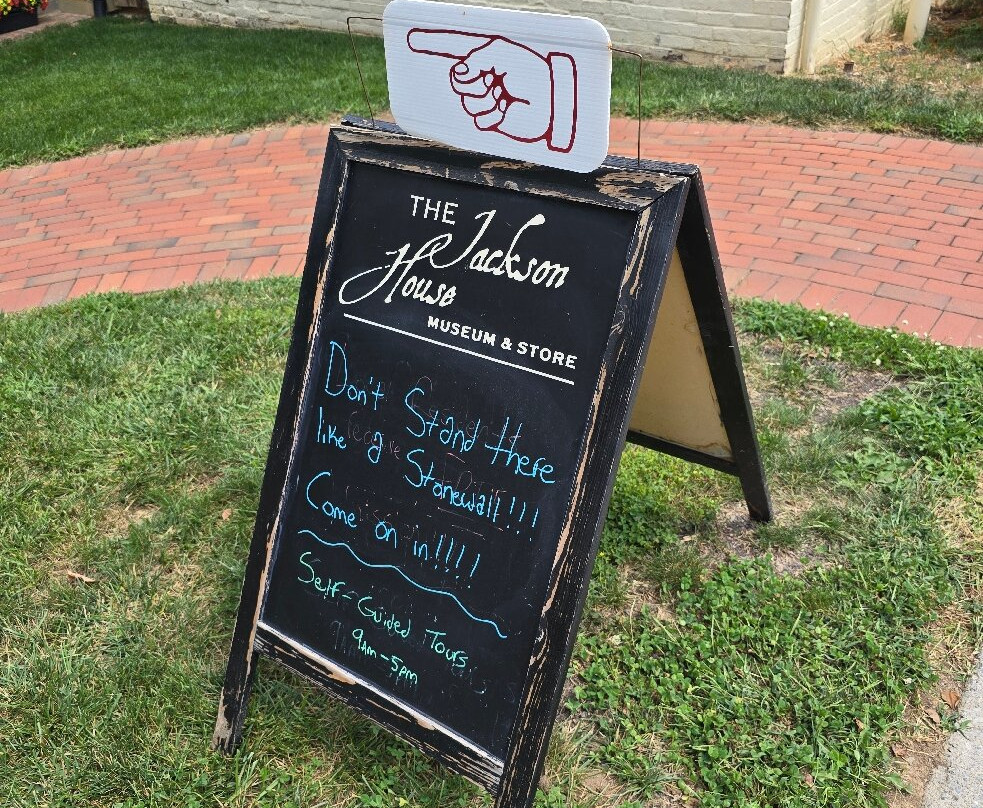 THE Jackson
House
MUSEUM & STORE
Don't Stand there
like a Stonewall!!!
Come on in!!!!
Self-Guided Tours
9am-5pm